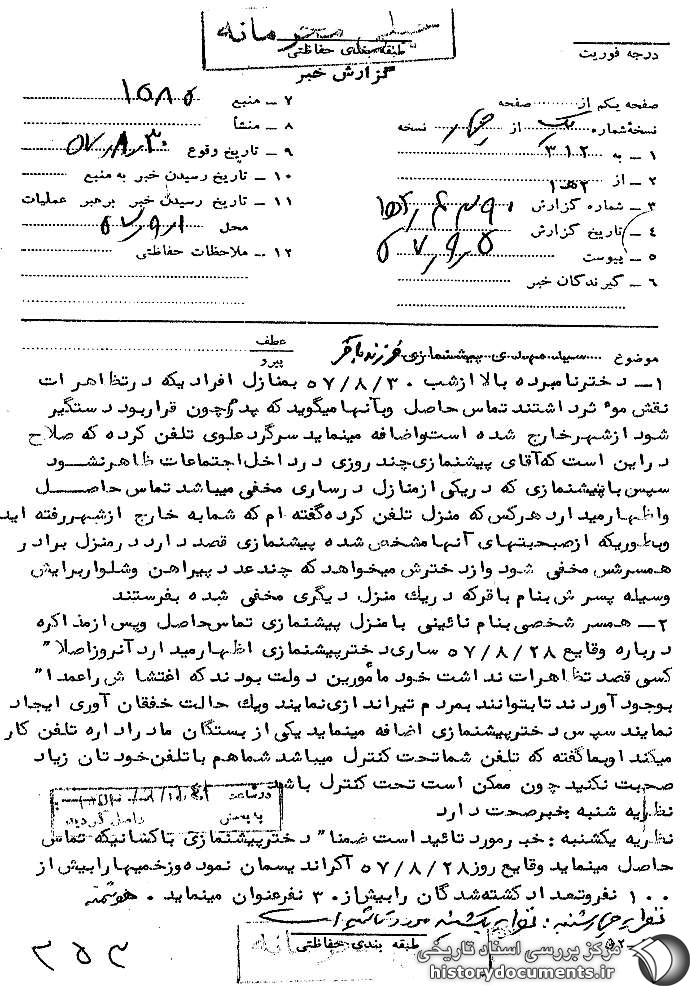 خیلی محرمانه
طبقه بندی حفاظتی
گزارش خبر
درجه فوریت
صفحه یکم از صفحه
نسخه شماره یک از چهار نسخه
۱ ــ به ۳۱۲
۲ ــ از ۲ هـ ۱
۳ ــ شماره گزارش
۴ ــ تاریخ گزارش ۵۷/۹/۵
۵ ــ پیوست
۶ ــ گیرندگان خبر
۷ ــ منبع ۱۵۸۵
۸ ــ منشأ
۹ ــ تاریخ وقوع ۵۷/۸/۳۰
۱۰ ــ تاریخ رسیدن خبر به منبع
۱۱ ــ تاریخ رسیدن خبر برهبر عملیات
محل ۵۷/۹/۱
۱۲ ــ ملاحظات حفاظتی
موضوع سید مهدی پیشنمازی فرزند باقر
عطف
پیرو
۱ــ دختر نامبرده بالا از شب ۵۷/۸/۳۰ بمنازل افرادیکه در تظاهرات
نقش موثر داشتند تماس حاصل و بآنها میگوید که پدرم چون قرار بود دستگیر
شود از شهر خارج شده است و اضافه مینماید سرگرد علوی تلفن کرده که صلاح
در این است که آقای پیشنمازی چند روزی در داخل اجتماعات ظاهر نشود
سپس با پیشنمازی که در یکی از منازل در ساری مخفی میباشد تماس حاصل
و اظهار میدارد هرکس که منزل تلفن کرده گفته ام که شما به خارج از شهر رفته اید
و بطوریکه از صحبتهای آنها مشخص شده پیشنمازی قصد دارد در منزل برادر
همسرش مخفی شود و از دخترش میخواهد که چند عدد پیراهن و شلوار برایش
وسیله پسرش بنام باقر که در یک منزل دیگری مخفی شده بفرستند
۲ــ همسر شخصی بنام نائینی با منزل پیشنمازی تماس حاصل و پس از مذاکره
درباره وقایع ۵۷/۸/۲۸ ساری دختر پیشنمازی اظهار میدارد آنروز اصلا"
کسی قصد تظاهرات نداشت خود مأمورین دولت بودند که اغتشاش را عمدا"
بوجود آوردند تا بتوانند بمردم تیراندازی نمایند و یک حالت خفقان آوری ایجاد
نمایند سپس دختر پیشنمازی اضافه مینماید یکی از بستگان ما در اداره تلفن کار
میکند او بما گفته که تلفن شما تحت کنترل میباشد شما هم با تلفن خودتان زیاد
صحبت نکنید چون ممکن است تحت کنترل باشد
نظریه شنبه : خبر صحت دارد
در ساعت
بایگانی
واصل گردید
نظریه یکشنبه : خبر مورد تائید است ضمنا" دختر پیشنمازی با کسانیکه تماس
حاصل مینماید وقایع روز ۵۷/۸/۲۸ را گراند یسمان نموده و زخمیها را بیش از
۱۰۰ نفر و تعداد کشته شدگان را بیش از ۳۰ نفر عنوان مینماید . هوشمند
نظریه چهارشنبه : نظریه یکشنبه مورد تائید است
طبقه بندی حفاظتی
محرمانه
۳۵۳
مرکز بررسی اسناد تاریخی
historydocuments.ir